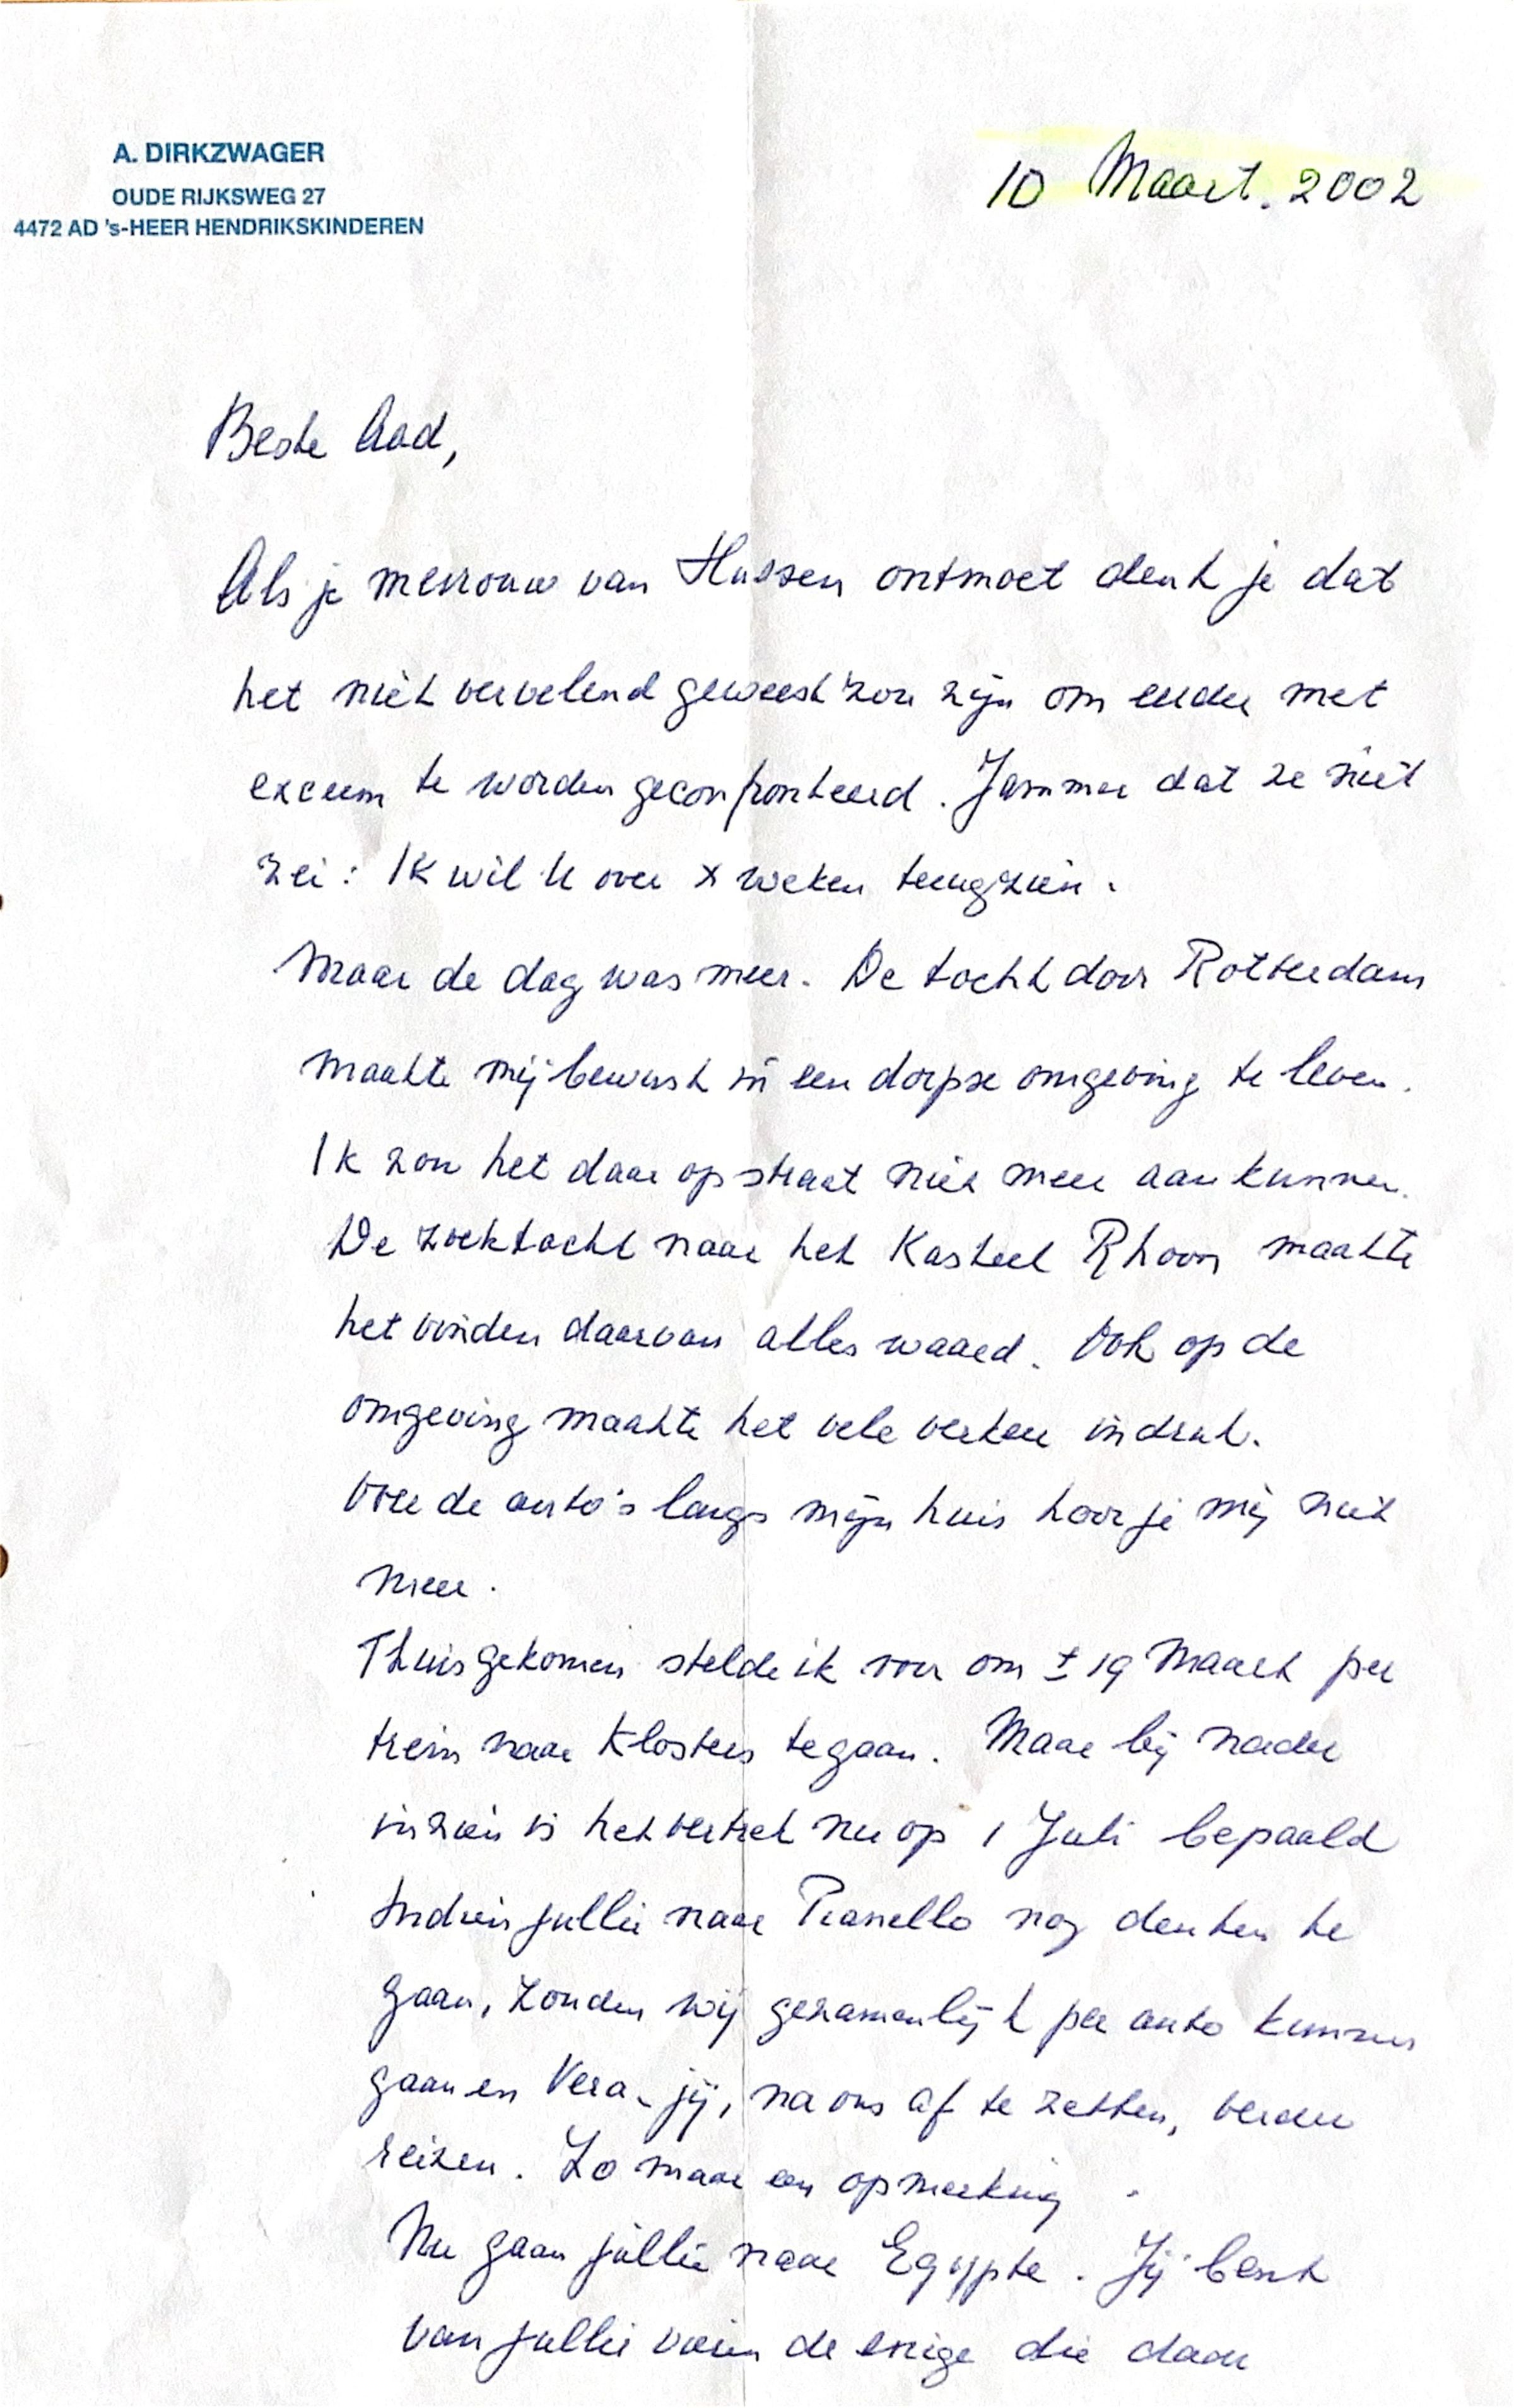 A. DIRKZWAGER
OUDE RIJKSWEG 27
4472 AD 's-HEER HENDRIKSKINDEREN
10 Maart. 2002
Beste Aad,
Als je mevrouw van Hussen ontmoet denk je dat
het niet vervelend geweest zou zijn om eerder met
exceem te worden geconfronteerd. Jammer dat ze niet
zei: Ik wil U over x weken terugzien.
Maar de dag was meer. De tocht door Rotterdam
maakte mij bewust in een dorpse omgeving te leven.
Ik zou het daar op straat niet meer aan kunnen.
De zoektocht naar het Kasteel Rhoon maakte
het vinden daarvan alles waard. Ook op de
omgeving maakte het vele verkeer indruk.
Over de auto's langs mijn huis hoor je mij niet
meer.
Thuisgekomen stelde ik voor om ± 19 Maart per
trein naar Klosters te gaan. Maar bij nader
inzien is het vertrek nu op 1 Juli bepaald
Indien jullie naar Pianello nog denken te
gaan, zouden wij gezamenlijk per auto kunnen
gaan en Vera - jij, na ons af te zetten, verder
reizen. Zo maar een opmerking.
Nu gaan jullie naar Egypte. Jij bent
van jullie vieren de enige die daar